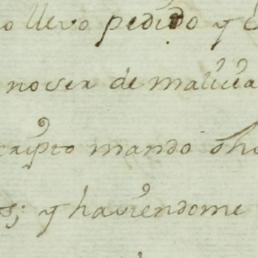 o llevo pedido y
no ser de malicia
cripto mando
s; y haviendome